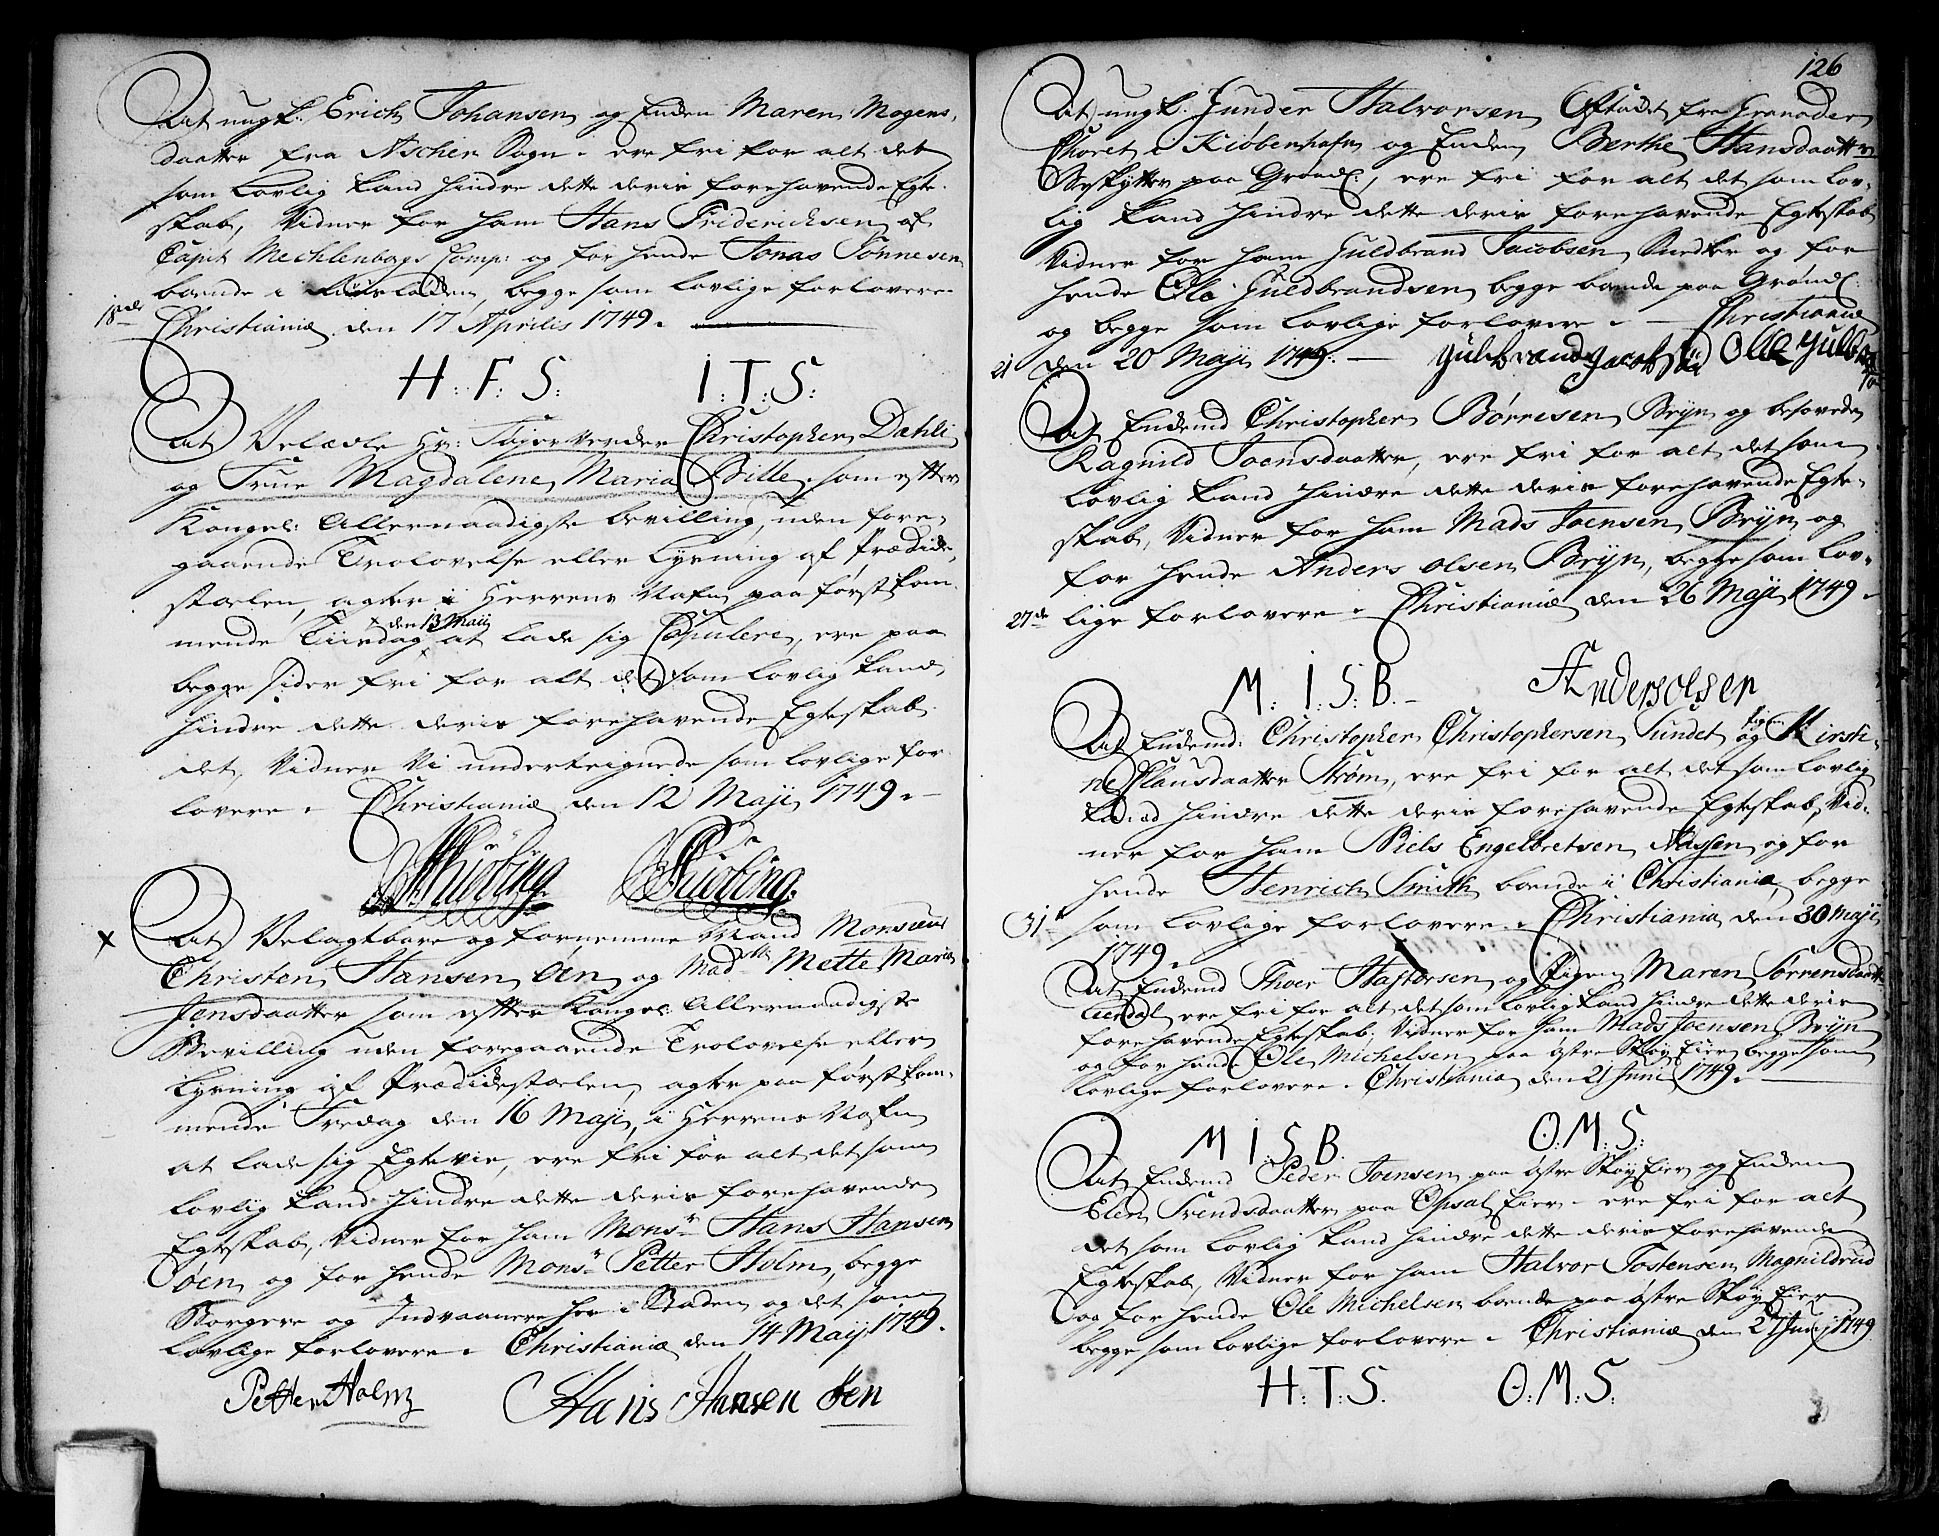 At ungk: Erich Johansen og Enken Maren Mogens
daatter fra Ascher Sogn. ere fri for alt det
som lovlig kand hindre dette deris forehavende Egte-
skab, Vidner for ham Hans Friderichsen af
Capit Mechlenborgs Comp: og for hende Jonas Tønnesen
boende i begge som lovlige forlovere
18de
Christiania den 17 Aprilis 1749.
H: F: S: I: T: S:
At Velædle Hr: Christopher Dahli
og Frue Magdalene Maria Bille, som efter
Kongel: Allernaadigste bevilling, uden fore-
gaaende Trolovelse eller Lysning af Prædicke-
stoelen, agter i Herrens Nafn paa først kom-
x den 13 Maij
mende Tiirsdag at lade sig Copulere, ere paa
begge sider fri for alt det som lovlig kand
hindre dette deris forehavende Egteskab
det Vidner Vi underteignede som lovlige for-
lovere. Christiania den 12 Maji 1749.
x At Velagtbare og fornemme Mand Monsieur
Christen Hansen Øen og Madlle Mette Maria
Jensdaatter som efter Kongel: Allernaadigste
Bevilling uden foregaaende Trolovelse eller
Lysning af Prædickestoelen, agter paa først kom-
mende Fredag den 16 Maji, i Herrens Nafn
at lade sig Egtevie, ere fri for alt det som
lovlig kand hindre dette deris forehavende
Egteskab, Vidner for ham Monsr Hans Hansen
Øen og for hende Monsr Petter Holm, begge
Borgere og Indvaanere her i Staden og det som
lovlige forlovere. Christiania den 14 Maij 1749.
Petter Holm Hans Hansen Øen
126
At ungk: Gunder Halvorsen Afskedet fra Granader
Choret i Kiøbenhafn og Enken Berthe Hansdaatter
paa Grønl:, ere fri for alt det som lov-
lig kand hindre dette deris forehavende Egteskab
Vidner for ham Guldbrand Jacobsen Snedker og for
hende Ole Guldbrandsen begge boende paa Grønl:
og begge som lovlige forlovere. Christiania
21 den 20 Maji 1749.
At Enkemd Christopher Børresen Bryn og behovede
Ragnild Joensdaatter, ere fri for alt det som
lovlig kand hindre dette deris forehavende Egte-
skab, Vidner for ham Mads Joensen Bryn og
for hende Anders Olsen Bryn, begge som lov-
27de lige forlovere. Christiania den 26 Maji 1749.
M: I: S: B. Anders Olsen
At Enkemd: Christopher Christophersen Sundet og Pigen Kirsti-
ne Clausdaatter Strøm, ere fri for alt det som lovlig
kand hindre dette deris forehavende Egteskab, Vid-
ner for ham Niels Engelbretsen Nassen og for
hende Henrich Smith boende i Christiania, begge
31 som lovlige forlovere. Christiania den 30 Maji
1749.
At Enkemd Thoer Hastorsen og Pigen Maren Sørrensdaatter
ere fri for alt det som lovlig kand hindre dette deris
forehavende Egteskab, Vidner for ham Mads Joensen Bryn
og for hende Ole Michelsen paa østre Skøy Eier begge som
lovlige forlovere. Christiania den 21 Junii 1749.
M I S B. O: M: S:
At Enkemd Peder Joensen paa østre Skøy Eier og Enken
Elen Trendsdaatter paa Opsal Eier. ere fri for alt
det som lovlig kand hindre dette deris forehavende
Egteskab, Vidner for ham Halvor Tostensen Magnildrud
og for hende Ole Michelsen boende paa østre Skøy Eier
begge som lovlige forlovere. Christiania den 27 Junj 1749
H: T: S: O: M: S: